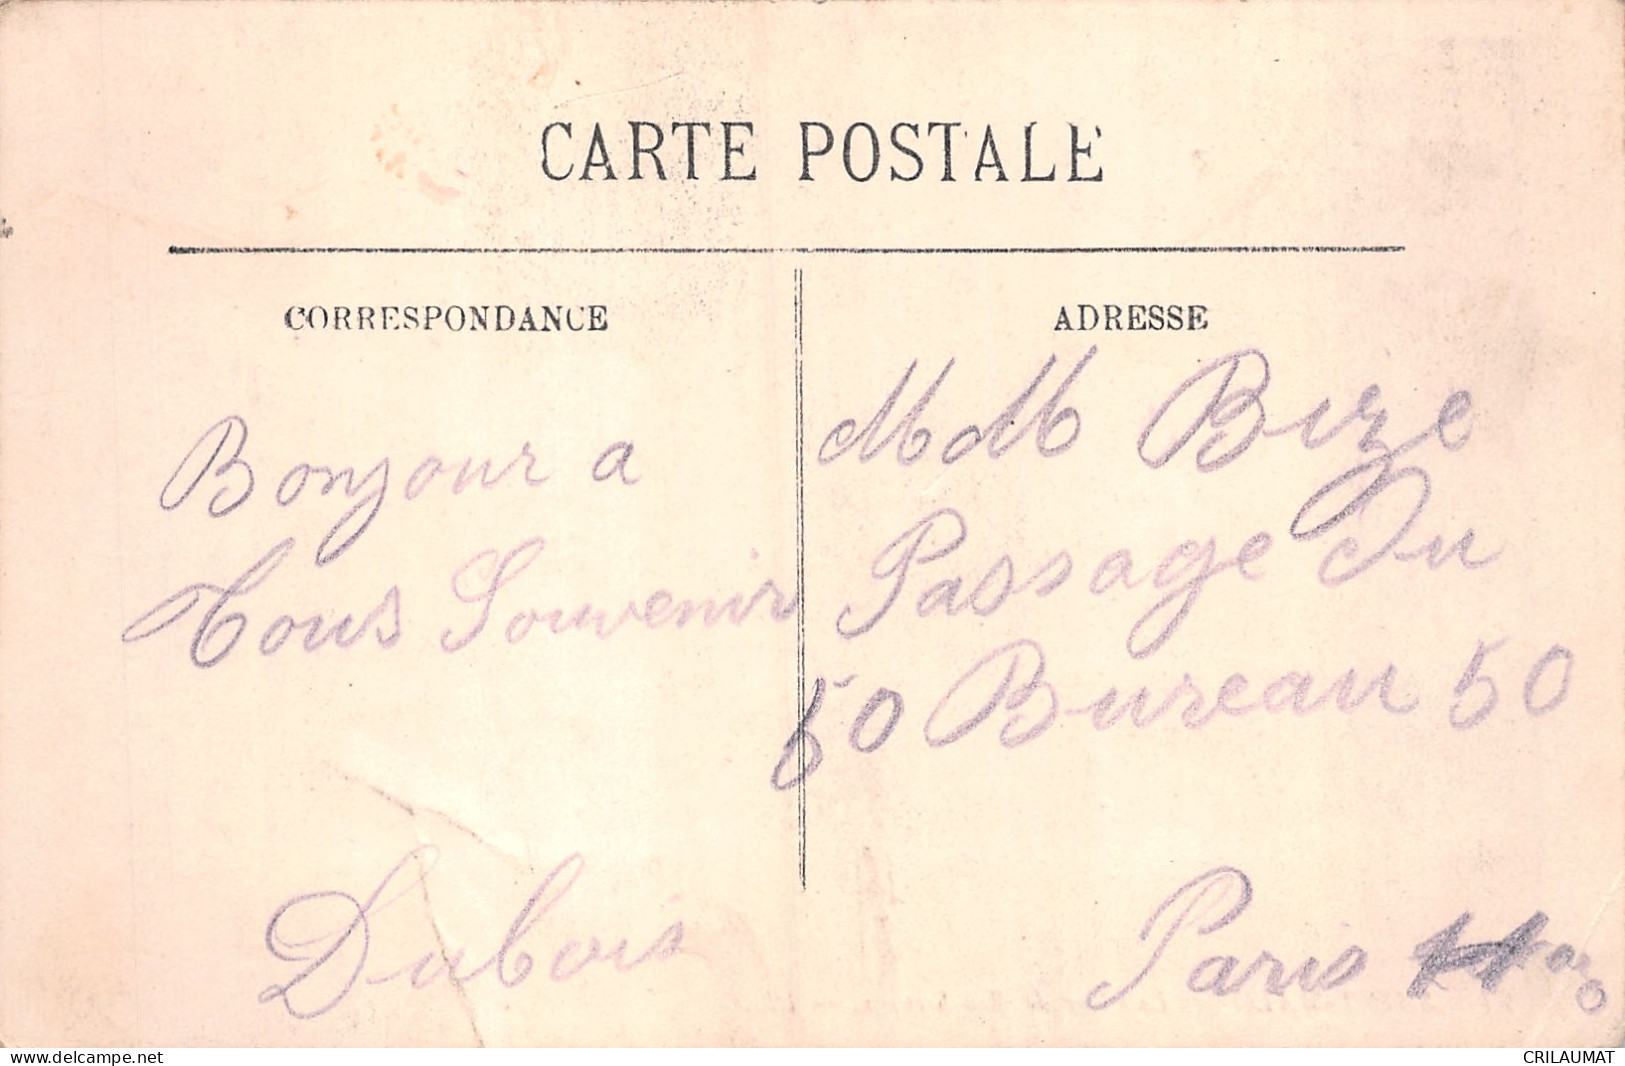 CARTE POSTALE
CORRESPONDANCE
Bonjour a
Tous Souvenir
Dubois
ADRESSE
MM Bize
Passage Du
50 Bureau 50
Paris 11
www.delcampe.net
CRILAUMAT